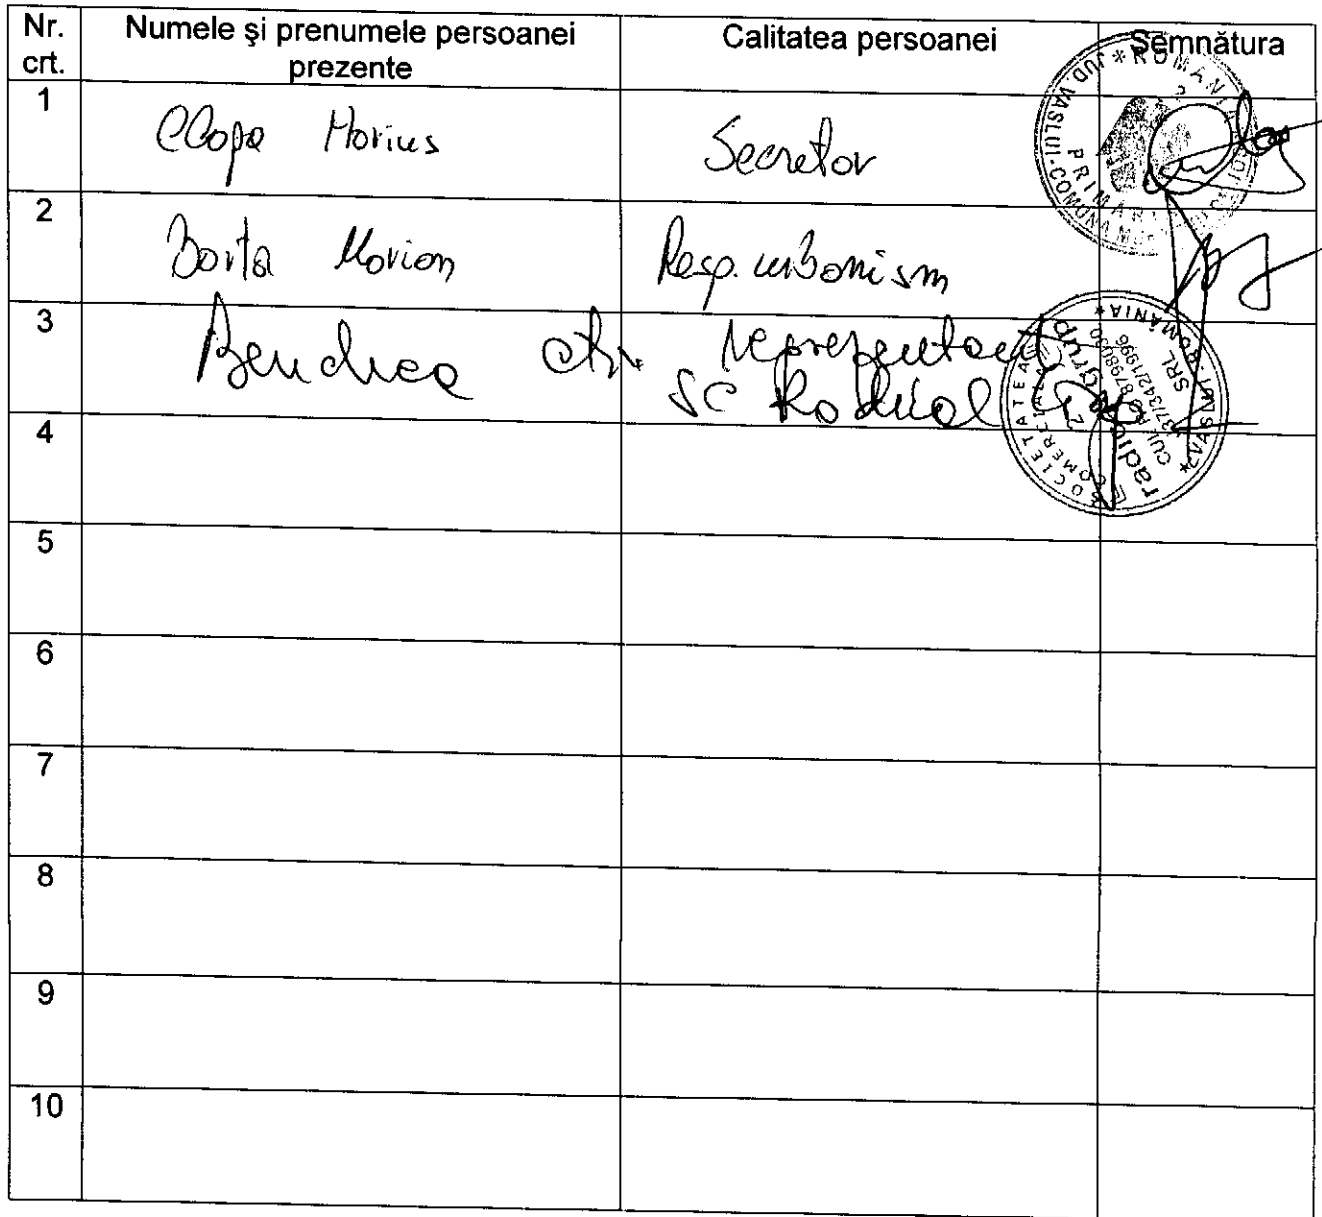 Nr. crt. Numele şi prenumele persoanei prezente Calitatea persoanei Semnătura
1 Clopa Marius Secretar
2 Borta Marian Resp. urbanism
3 Benchea reprezentant
SC
4
5
6
7
8
9
10
ROMÂNIA * JUD. VASLUI · COMUNA
PRIMAR
SOCIETATEA COMERCIALĂ * VASLUI - ROMÂNIA *
SRL